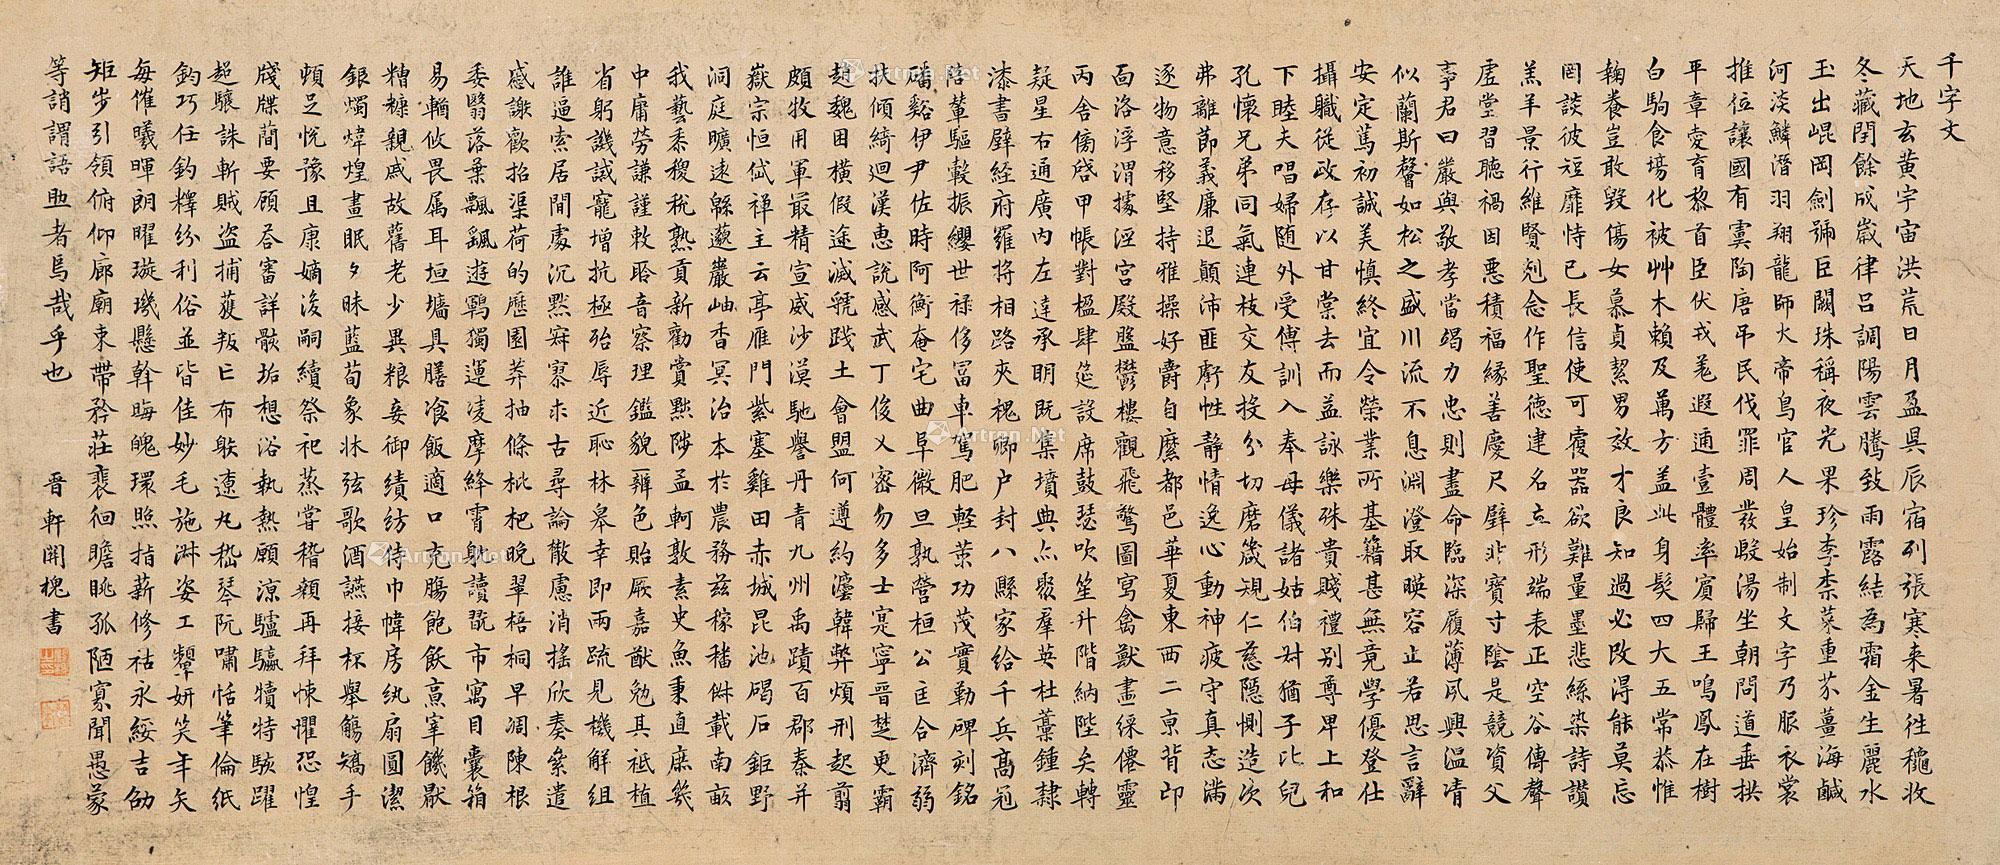 千字文
天地玄黃宇宙洪荒日月盈昃辰宿列張寒来暑往穐收
冬藏閏餘成歲律呂調陽雲騰致雨露結為霜金生麗水
玉出崐岡劍號巨闕珠稱夜光果珍李柰菜重芥薑海鹹
河淡鱗潛羽翔龍師火帝鳥官人皇始制文字乃服衣裳
推位讓國有虞陶唐弔民伐罪周發殷湯坐朝問道垂拱
平章愛育黎首臣伏戎羌遐邇壹體率賓歸王鳴鳳在樹
白駒食場化被艸木賴及萬方蓋此身髮四大五常恭惟
鞠養豈敢毀傷女慕貞絜男效才良知過必改得能莫忘
罔談彼短靡恃己長信使可覆器欲難量墨悲絲染詩讚
羔羊景行維賢剋念作聖德建名立形端表正空谷傳聲
虛堂習聽禍因惡積福緣善慶尺璧非寶寸陰是競資父
事君曰嚴與敬孝當竭力忠則盡命臨深履薄夙興溫凊
似蘭斯馨如松之盛川流不息淵澄取暎容止若思言辭
安定篤初誠美慎終宜令榮業所基籍甚無竟學優登仕
攝職從政存以甘棠去而益詠樂殊貴賤禮別尊卑上和
下睦夫唱婦随外受傅訓入奉母儀諸姑伯叔猶子比兒
孔懷兄弟同氣連枝交友投分切磨箴規仁慈隱惻造次
弗離節義廉退顛沛匪虧性靜情逸心動神疲守真志滿
逐物意移堅持雅操好爵自縻都邑華夏東西二京背邙
面洛浮渭據涇宮殿盤鬱樓觀飛驚圖寫禽獸畫綵僊靈
丙舍傍啓甲帳對楹肆筵設席鼓瑟吹笙升階納陛弁轉
疑星右通廣內左達承明既集墳典亦聚羣英杜藁鍾隸
漆書壁經府羅將相路夾槐卿户封八縣家給千兵高冠
陪輦驅轂振纓世祿侈富車駕肥輕策功茂實勒碑刻銘
磻谿伊尹佐時阿衡奄宅曲阜微旦孰營桓公匡合濟弱
扶傾綺迴漢惠說感武丁俊乂密勿多士寔寧晉楚更霸
趙魏困橫假途滅虢踐土會盟何遵約灋韓弊煩刑起翦
頗牧用軍最精宣威沙漠馳譽丹青九州禹蹟百郡秦并
嶽宗恒岱禪主云亭雁門紫塞雞田赤城昆池碣石鉅野
洞庭曠遠緜邈巖岫杳冥治本於農務兹稼穡俶載南畝
我藝黍稷稅熟貢新勸賞黜陟孟軻敦素史魚秉直庶幾
中庸勞謙謹敕聆音察理鑑貌辨色貽厥嘉猷勉其祗植
省躬譏誡寵增抗極殆辱近恥林皋幸即兩疏見機解組
誰逼索居閒處沉默寂寥求古尋論散慮消搖欣奏累遣
慼謝歡招渠荷的歷園莽抽條枇杷晚翠梧桐早凋陳根
委翳落葉飄颻遊鵾獨運凌摩絳霄躭讀翫市寓目囊箱
易輶攸畏属耳垣墻具膳飡飯適口充腸飽飫烹宰饑厭
糟糠親戚故舊老少異粮妾御績紡侍巾帷房紈扇圓潔
銀燭煒煌晝眠夕寐藍荀象牀弦歌酒讌接杯舉觴矯手
頓足悅豫且康嫡後嗣續祭祀蒸嘗稽顙再拜悚懼恐惶
牋牒簡要顧答審詳骸垢想浴執熱願涼驢驘犢特駭躍
超驤誅斬賊盗捕獲叛亡布躲遼丸嵇琴阮嘯恬筆倫紙
鈞巧任釣釋紛利俗並皆佳妙毛施淑姿工顰妍笑年矢
每催曦暉朗曜璇璣懸斡晦魄環照指薪修祜永綏吉劭
矩步引領俯仰廊廟束帶矜莊裵徊瞻眺孤陋寡聞愚蒙
等誚謂語助者焉哉乎也
晉軒開槐書